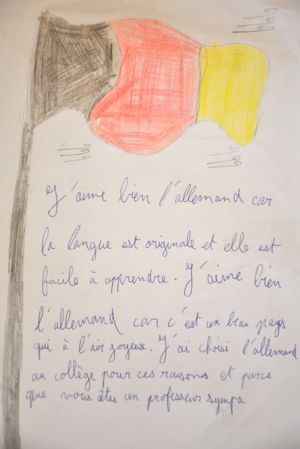 J'aime bien l'allemand car
la langue est originale et elle est
facile à apprendre. J'aime bien
l'allemand car c'est un beau pays
qui à l'air joyeuse. J'ai choisi l'allemand
au collège pour ces raisons et parce
que vous êtes un professeur sympa